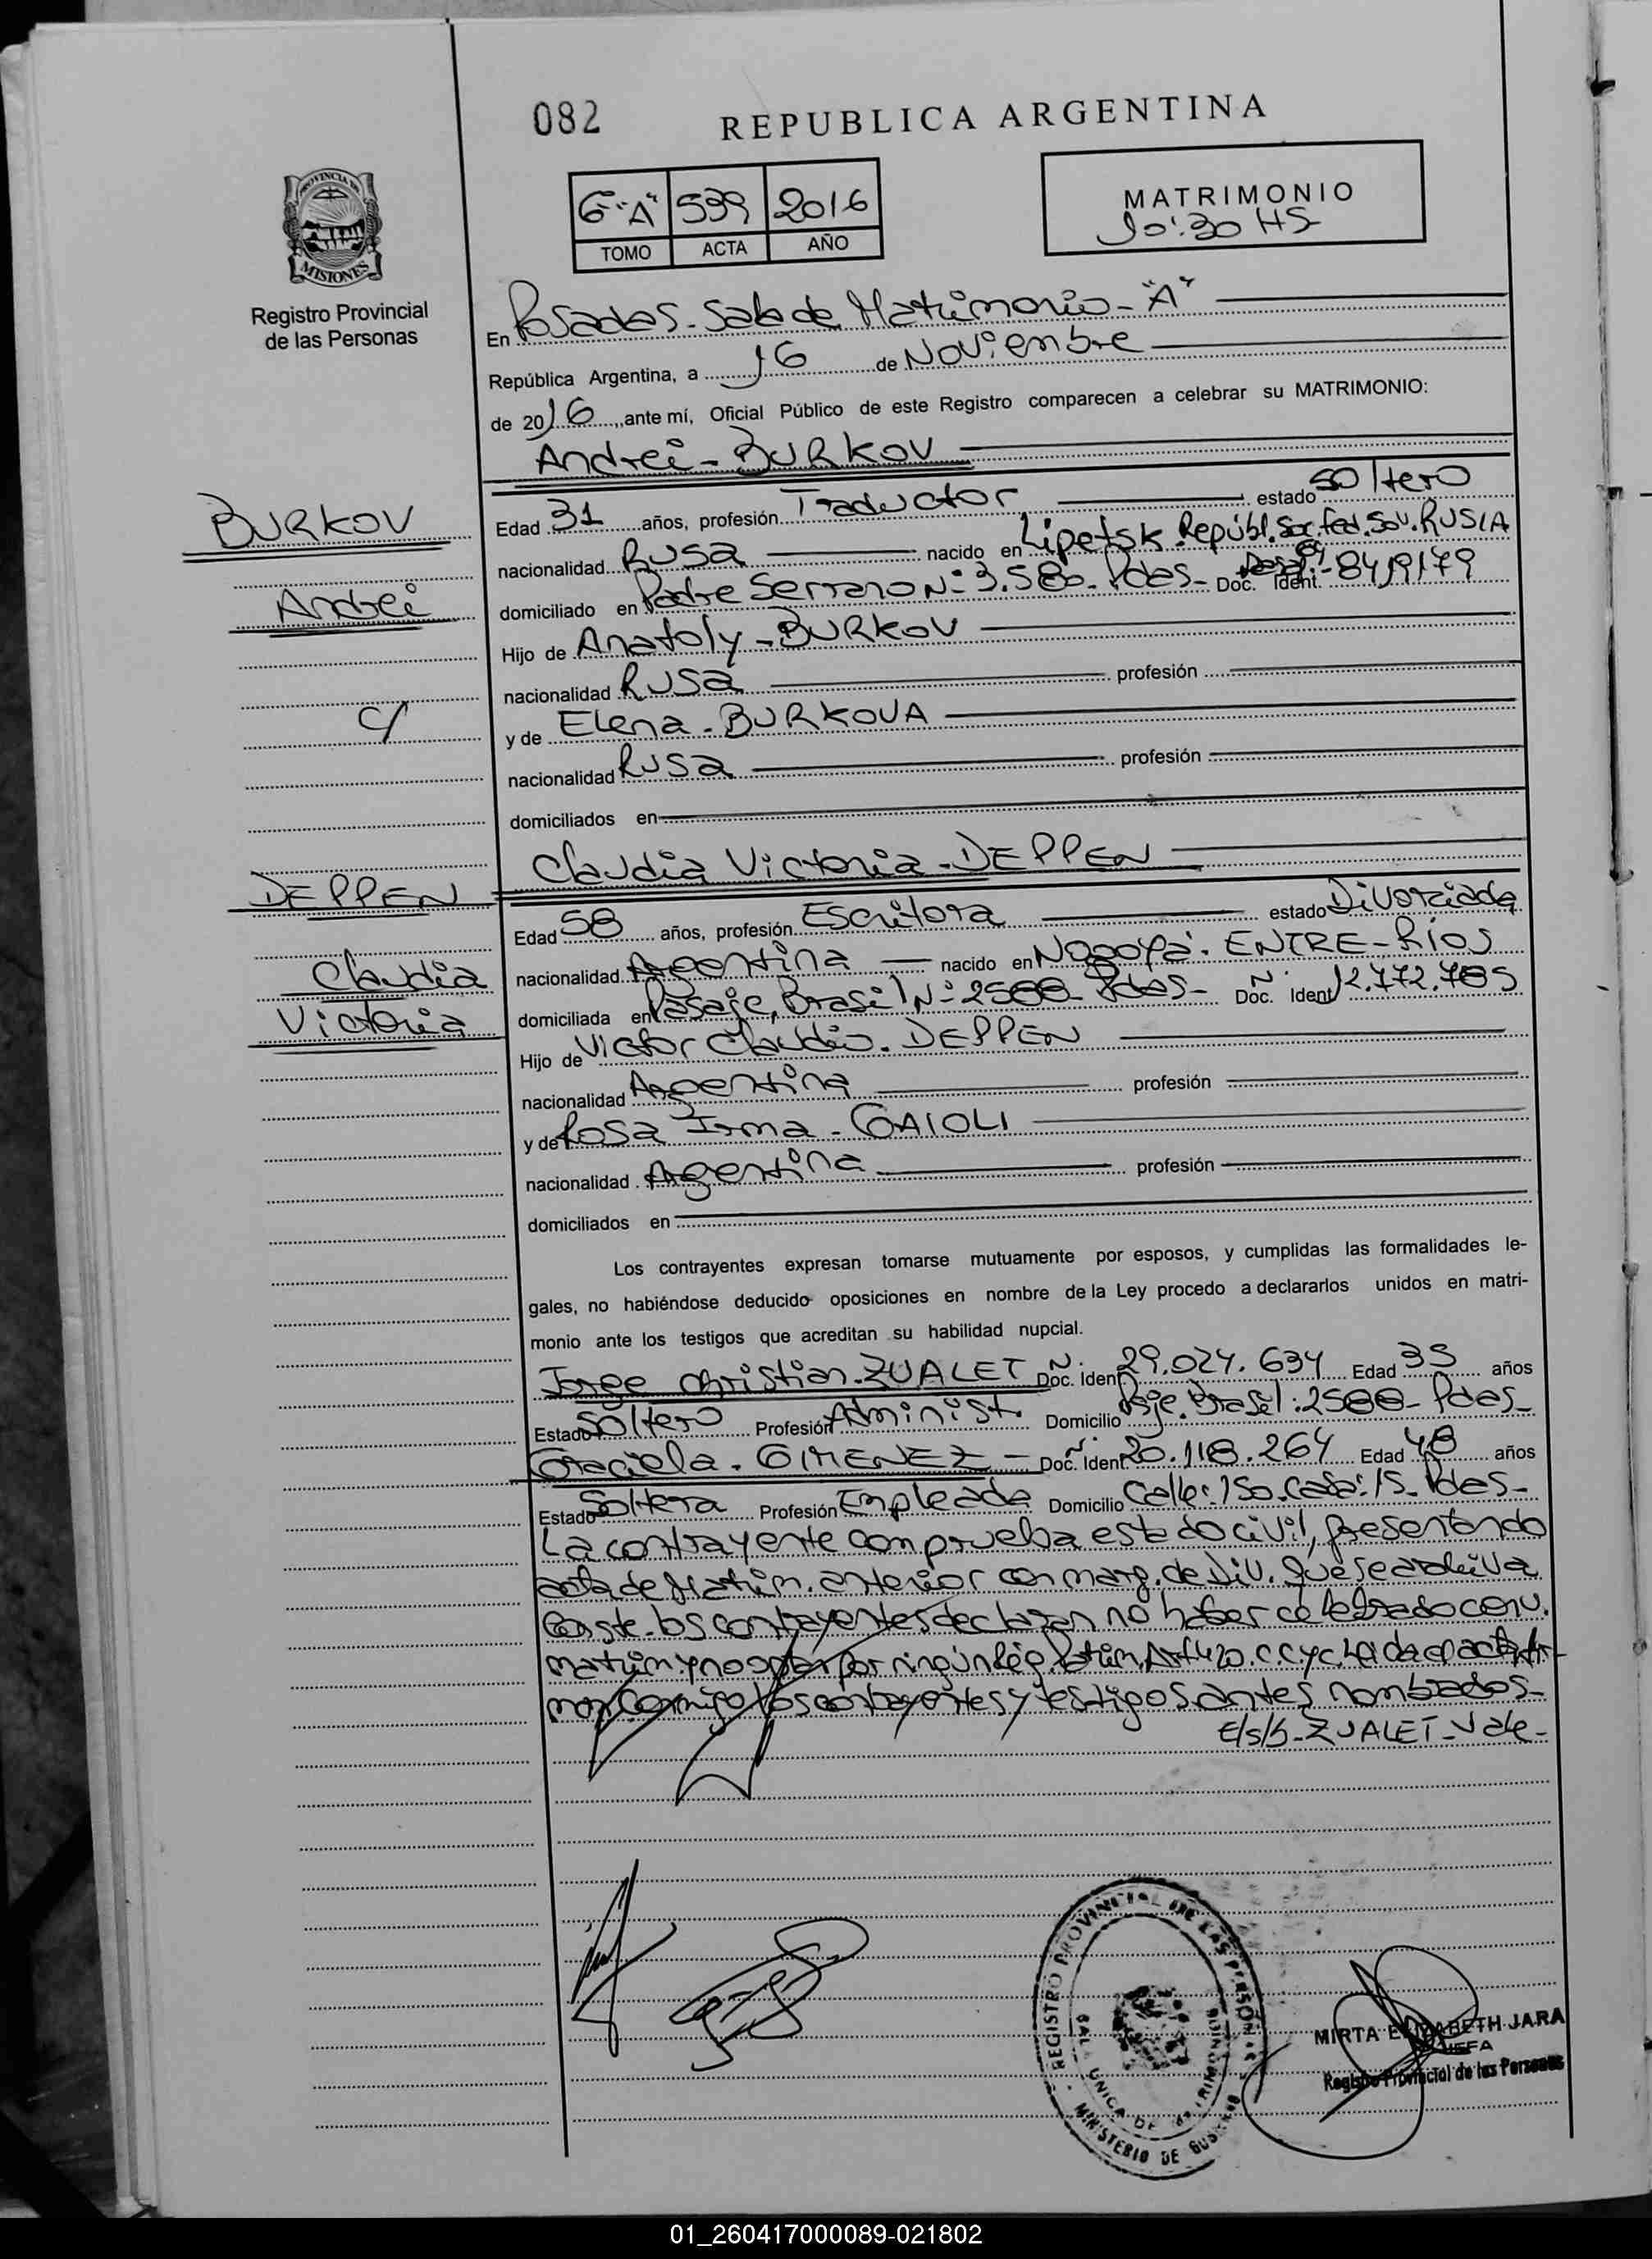 082
REPUBLICA ARGENTINA
6-"A" 539 2016
TOMO ACTA AÑO
MATRIMONIO
10:30 HS
PROVINCIA DE
MISIONES
Registro Provincial
de las Personas
En Posadas - Sala de Matrimonio - "A"
República Argentina, a 16 de Noviembre
de 2016, ante mí, Oficial Público de este Registro comparecen a celebrar su MATRIMONIO:
Andrei - BURKOV
BURKOV
Andrei
c/
DEPPEN
Claudia
Victoria
Edad 31 años, profesión Traductor estado Soltero
nacionalidad Rusa nacido en Lipetsk. Repúbl. Soc. Fed. Sov. RUSIA
domiciliado en Padre Serrano N° 3.580 - Pdas - Doc. Ident.
Hijo de Anatoly - BURKOV
nacionalidad Rusa profesión
y de Elena - BURKOVA
nacionalidad Rusa profesión
domiciliados en
Claudia Victoria - DEPPEN
Edad 58 años, profesión Escritora estado Divorciada
nacionalidad Argentina nacido en Nogoyá. ENTRE-RÍOS
domiciliada en Pasaje Brasil N° 2588 - Pdas - Doc. Ident N° 12.772.785
Hijo de Victor Claudio. DEPPEN
nacionalidad Argentina profesión
y de Rosa Irma - GAIOLI
nacionalidad Argentina profesión
domiciliados en
Los contrayentes expresan tomarse mutuamente por esposos, y cumplidas las formalidades le-
gales, no habiéndose deducido oposiciones en nombre de la Ley procedo a declararlos unidos en matri-
monio ante los testigos que acreditan su habilidad nupcial.
Jorge Christian. ZUALET Doc. Ident N° 29.024.634 Edad 35 años
Estado Soltero Profesión Administ. Domicilio Psje. Brasil: 2588 - Pdas -
Graciela. GIMENEZ - Doc. Ident. N° 20.118.264 Edad 48 años
Estado Soltera Profesión Empleada Domicilio Calle: 150. Casa: 15 - Pdas -
La contrayente comprueba estado civil, presentando
acta de Matrim. anterior con marg. de Div. que se archiva
Conste. los contrayentes declaran no haber celebrado conv.
matrim. y no optar por ningún Rég. Patrim. Art 420. C.C yC. Leída el acta fir-
man Conmigo los contrayentes y testigos antes nombrados -
E/s/b - ZUALET - Vale -
REGISTRO PROVINCIAL DE LAS PERSONAS
SALA UNICA DE MATRIMONIOS
MINISTERIO DE GOBIERNO
MIRTA ELIZABETH JARA
JEFA
Registro Provincial de las Personas
01_260417000089-021802